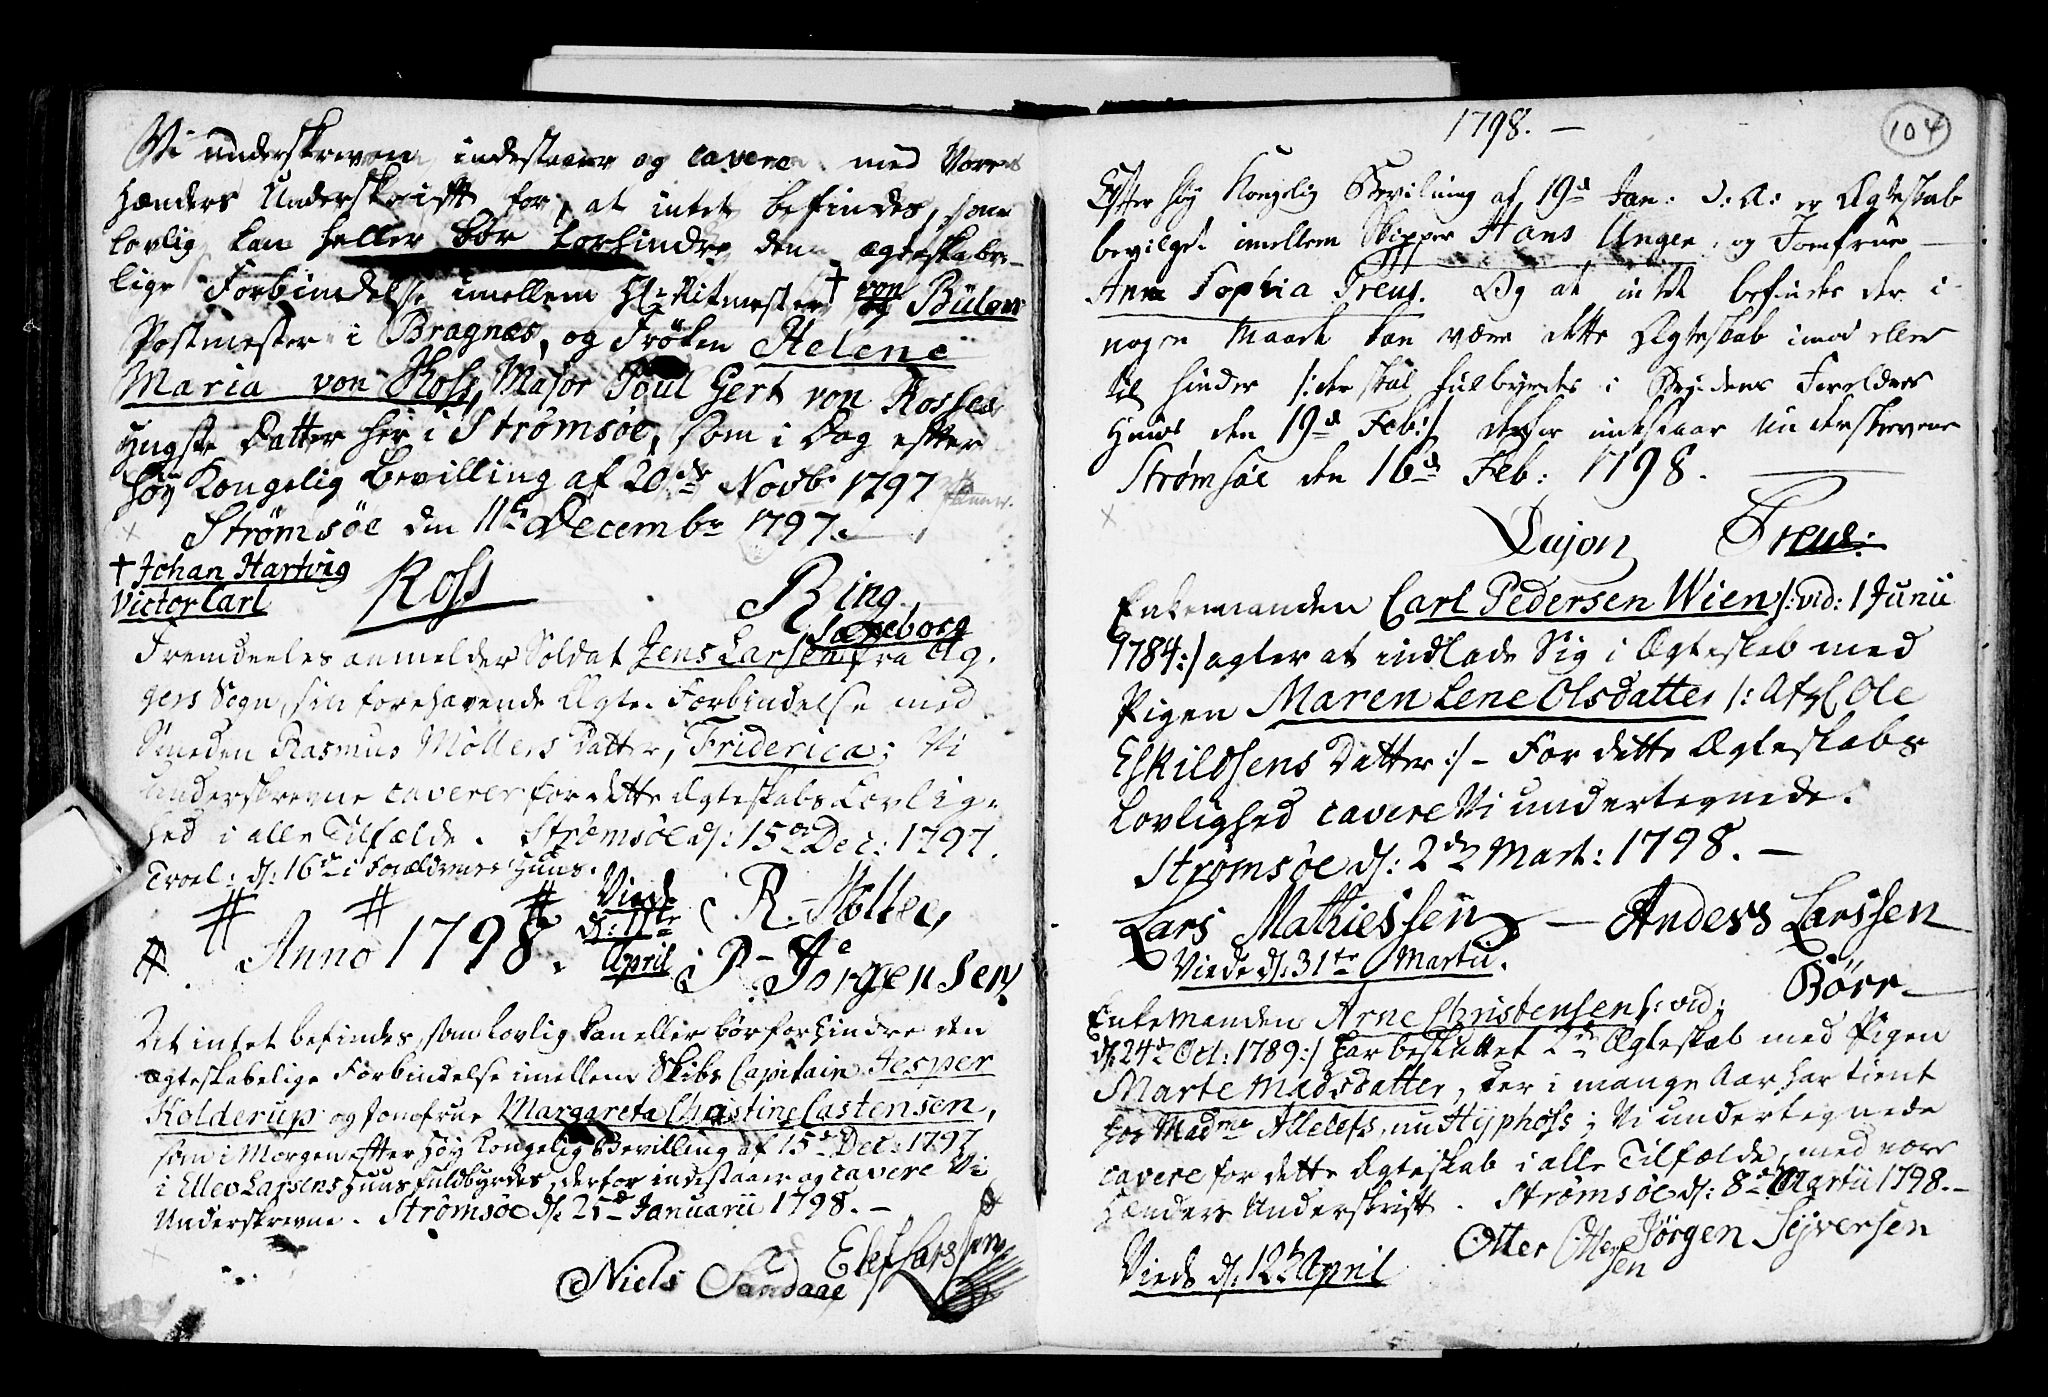 Vi underskrevne indestaaer og cavere med Vores
Hænders Underskrift for, at intet befindes, som
lovlig kan heller bør forhindre den ægteskabe-
lige Forbindelse imellem Hr: Ritmester † von Bülow
Postmester i Bragnæs, og Frøken Helene
Maria von Ross, Major Poul Gert von Rosses
yngste Datter her i Strømsøe, som i Dag efter
høy Kongelig Bevilling af 20de Novbr 1797
Strømsöe den 11te Decembr 1797.
† Johan Hartvig
Victor Carl
Ross Ring
Fremdeeles anmelder Soldat Jens Larsen fra Ag-
gers Sogn, sin forehavende Ægte Forbindelse med
Smeden Rasmus Möllers Datter, Friderica; Vi
underskrevne caverer for dette Ægteskabs Lovlig-
hed i alle Tilfælde. Strømsöe d: 15de Dec: 1797.
Trol: d: 16de i Forældrenes Huus.
Viede d: 11te April
R. Møller,
P. Jørgensen
Anno 1798.
At intet befindes, som lovlig kan eller bør forhindre den
ægteskabelige Forbindelse imellem Skibs Capitain Jesper
Kolderup og Jomfrue Margareta Christine Castensen,
som i Morgen efter høy Kongelig Bevilling af 15de Dec: 1797
i Ellev Larsens Huus fuldbyrdes, derfor indestaaer og cavere Vi
Underskrevne. Strømsöe d. 25de Januarii 1798. –
Niels Sandaae Elef Larssen
1798. –
104
Efter høy Kongelig Bevilning af 19de Jan: d: A: er Ægteskab
bevilget imellem Skipper Hans Unger, og Jomfrue
Anne Sophia Treus. Og at intet befindes der i
nogen Maade kan være dette Ægteskab imod eller
til hinder /: der skal fulbyrdes i Brudens Forelders
Huus den 19de Feb :/ derfor indestaar Underskrevne
Strømsøe den 16de Feb: 1798.
Dujon Treus:
Enkemanden Carl Pedersen Wien /: vid: 1 Junii
1784 :/ agter at indlade Sig i Ægteskab med
Pigen Maren Lene Olsdatter /: Afg: Ole
Eskildsens Datter :/ – For dette Ægteskabs
Lovlighed cavere Vi undertegnede.
Strømsöe d: 2de Mart: 1798. –
Lars Mathiessen – Anders Larssen
Börr
Viede d. 31te Martii.
Enkemanden Arne Christensen /: vid:
d. 24de Oct: 1789 :/ har besluttet 2det Ægteskab med Pigen
Marte Madsdatter, der i mange Aar har tient
hos Madme Allelefs, nu Hyphoss; Vi undertegnede
cavere for dette Ægteskab i alle Tilfælde, med vore
Hænders Underskrift. Strømsöe d: 8de Martii 1798. –
Otter Ottersen Jörgen Syversen
Viede d. 12te April